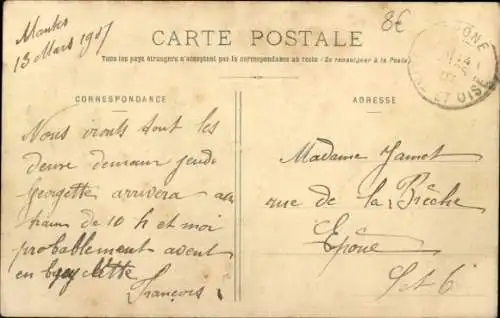 Mantes
13 Mars 1907
8€
CARTE POSTALE
Tous les pays étrangers n'acceptent pas la correspondance au recto (Se renseigner à la Poste)
CORRESPONDANCE
ADRESSE
PONE
ET OISE
Nous irons tout les
deux demain jeudi
Georgette arrivera au
train de 10 h et moi
probablement avant
en bicyclette
François
Madame Jamet
rue de la Brêche
Epône
S et O